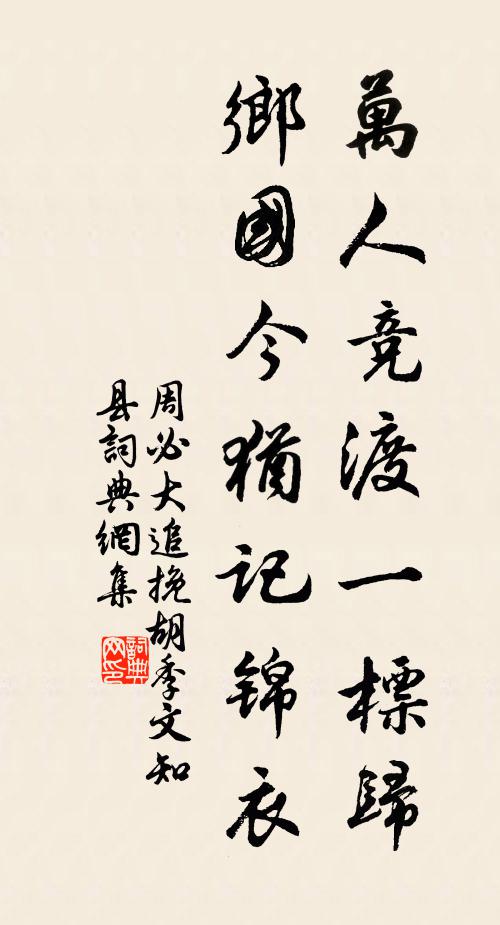 萬人竞渡一標歸
鄉國今猶记锦衣
周必大追挽胡季文知
县詞典網集
詞典網印